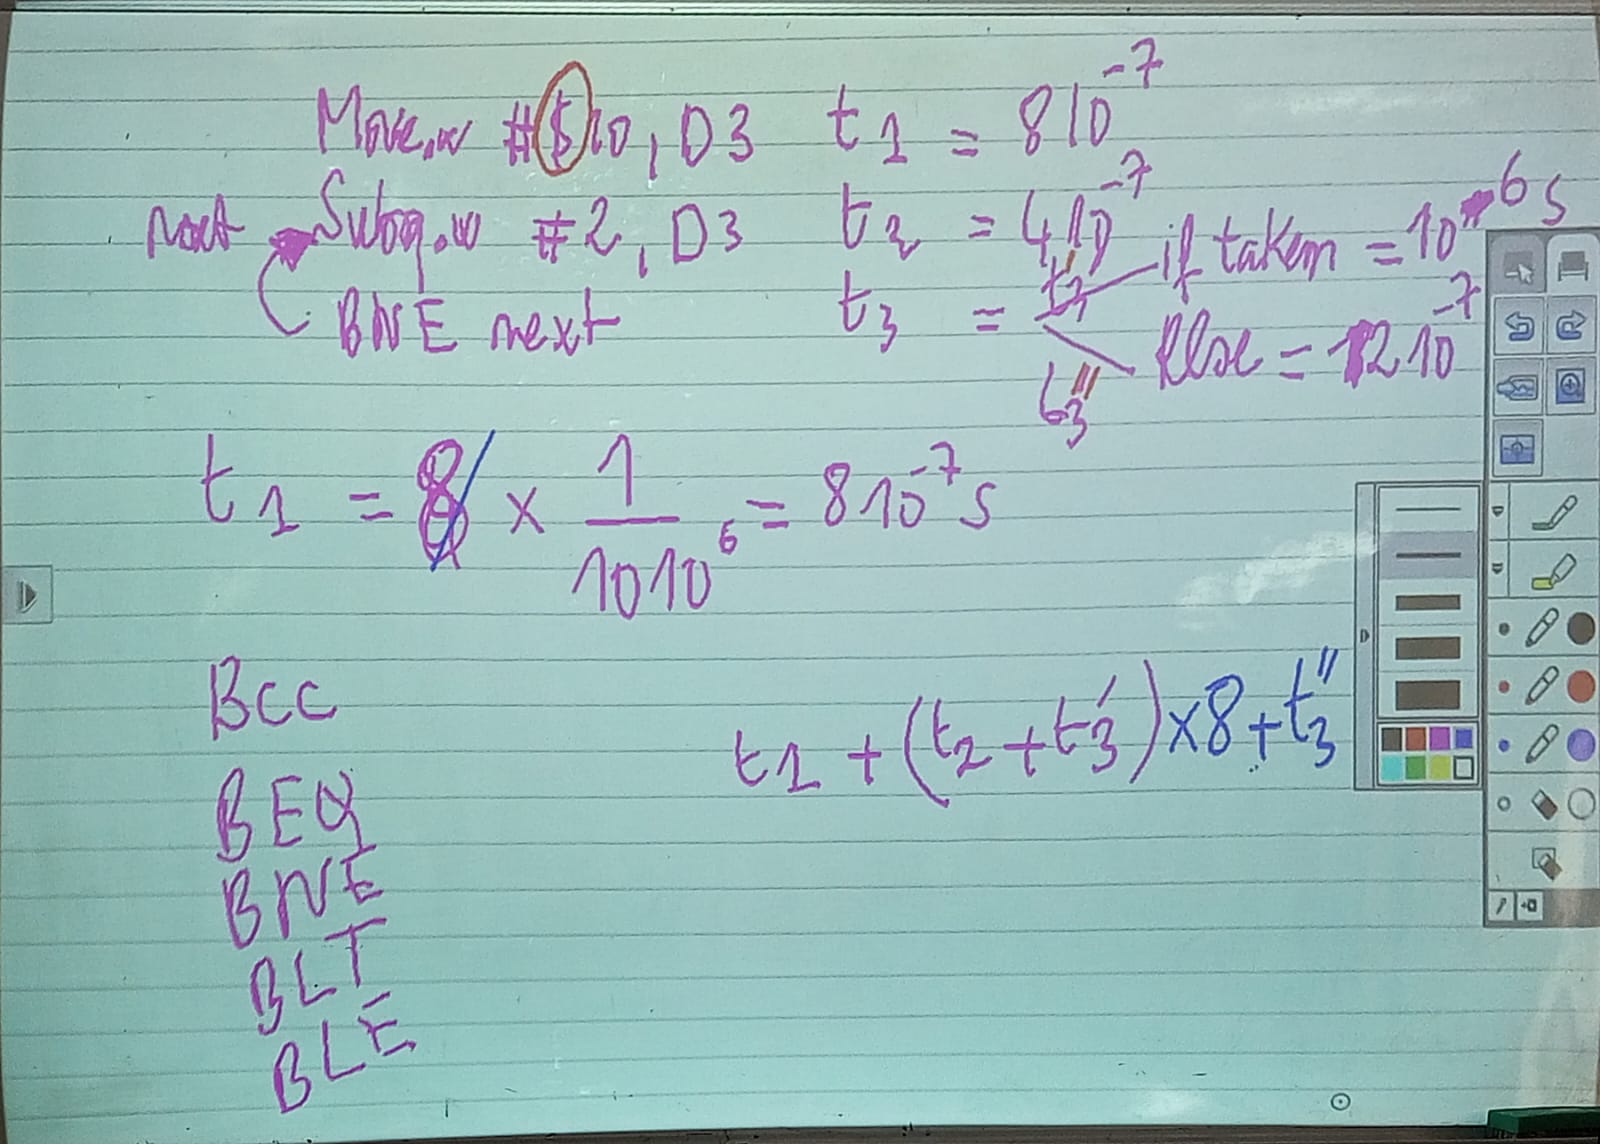 Move.w #$10, D3 t1 = 8 10^-7
next Subq.w #2, D3 t2 = 4 10^-7
BNE next t3 = t'3 if taken = 10^-6 s
t''3 Else = 12 10^-7
t1 = 8 × 1/10 10^6 = 8 10^-7 s
Bcc
t1 + (t2 + t'3) × 8 + t''3
BEQ
BNE
BLT
BLE